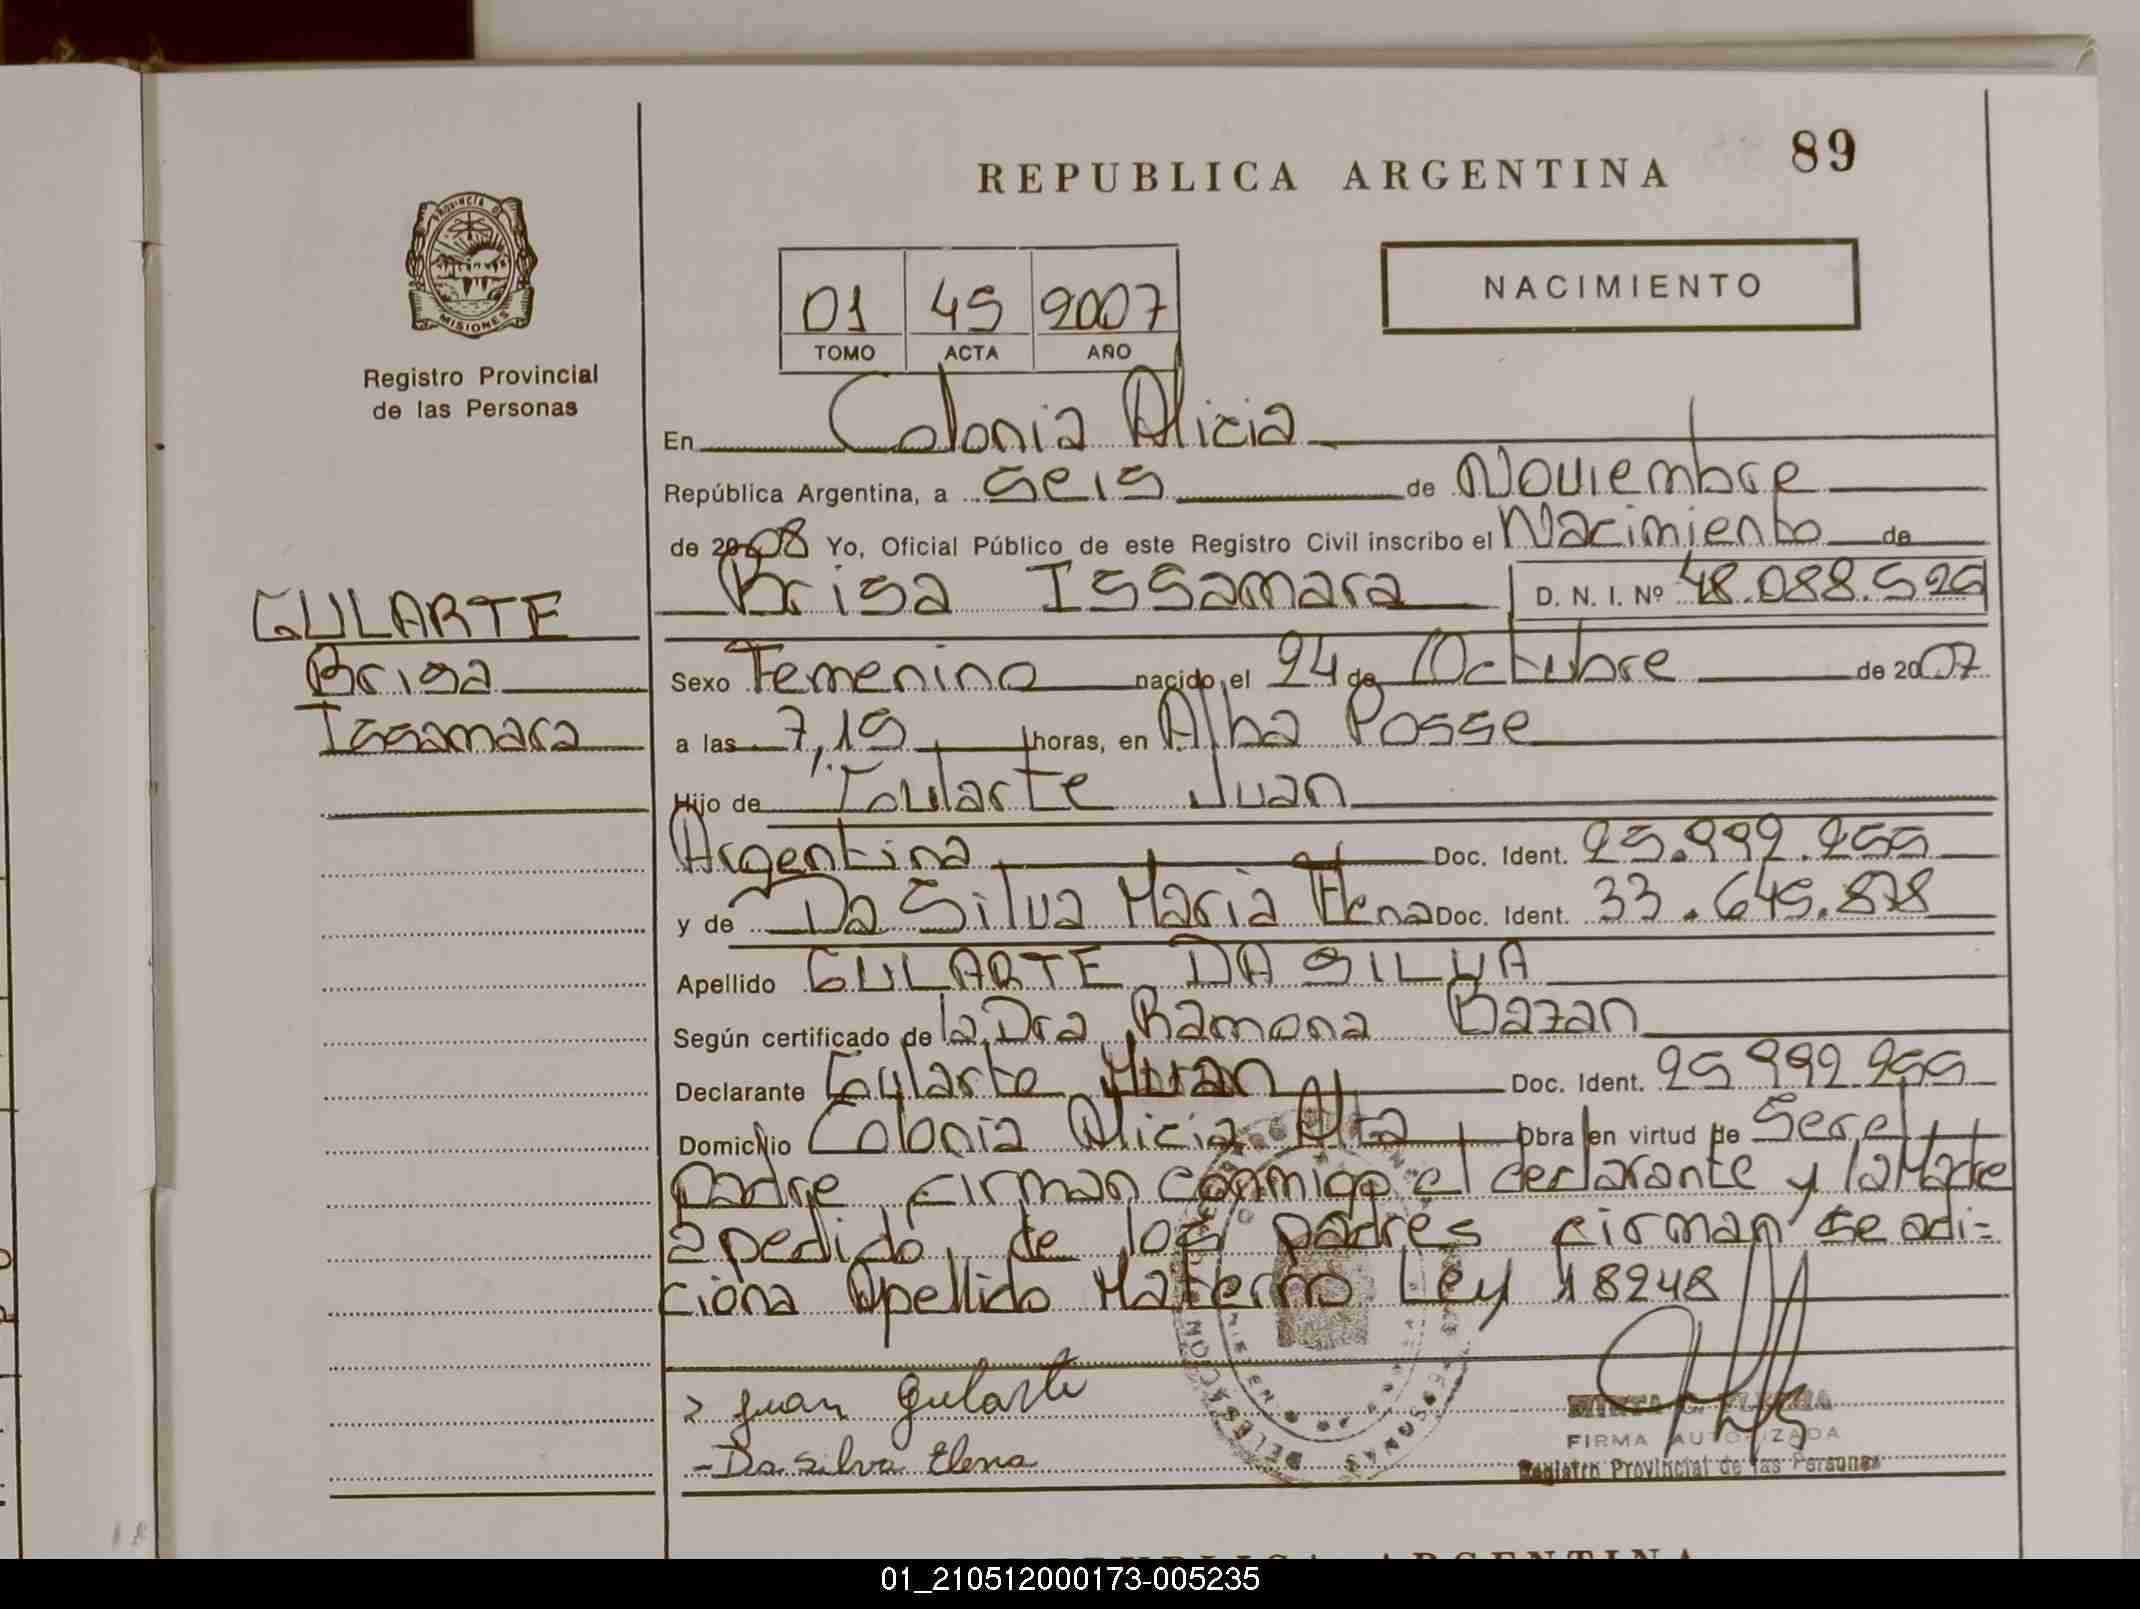 REPUBLICA ARGENTINA
89
PROVINCIA DE
MISIONES
Registro Provincial
de las Personas
01 45 2007
TOMO ACTA AÑO
NACIMIENTO
En Colonia Alicia
República Argentina, a seis de Noviembre
de 2008 Yo, Oficial Público de este Registro Civil inscribo el Nacimiento de
Brisa Issamara D. N. I. Nº 48.088.525
GULARTE
Brisa
Issamara
Sexo Femenino nacido el 24 de Octubre de 2007
a las 7,15 horas, en Alba Posse
Hijo de Gularte Juan
Argentina Doc. Ident. 25.992.255
y de Da Silva Maria Elena Doc. Ident. 33.645.878
Apellido GULARTE DA SILVA
Según certificado de la Dra Ramona Bazan
Declarante Gularte Juan Doc. Ident. 25 992 255
Domicilio Colonia Alicia Alta Obra en virtud de Ser el
padre firman conmigo el declarante y la Madre
a pedido de los padres firman se adi=
ciona Apellido Materno Ley 18248
Juan Gularte
-Da Silva Elena
FIRMA AUTORIZADA
Registro Provincial de las Personas
REPUBLICA ARGENTINA
01_210512000173-005235